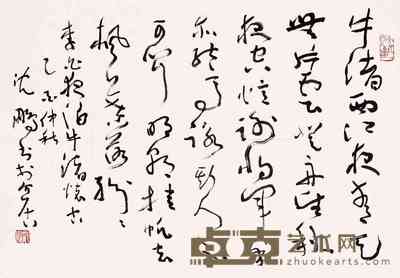 牛渚西江夜青天
無片雲登舟望秋
月空憶謝將軍余
亦能高詠斯人不
可聞明朝掛帆去
楓葉落紛〻
李白夜泊牛渚懷古
乙酉仲秋
沈鹏书于介居
卓克艺术网
www.zhuokearts.com